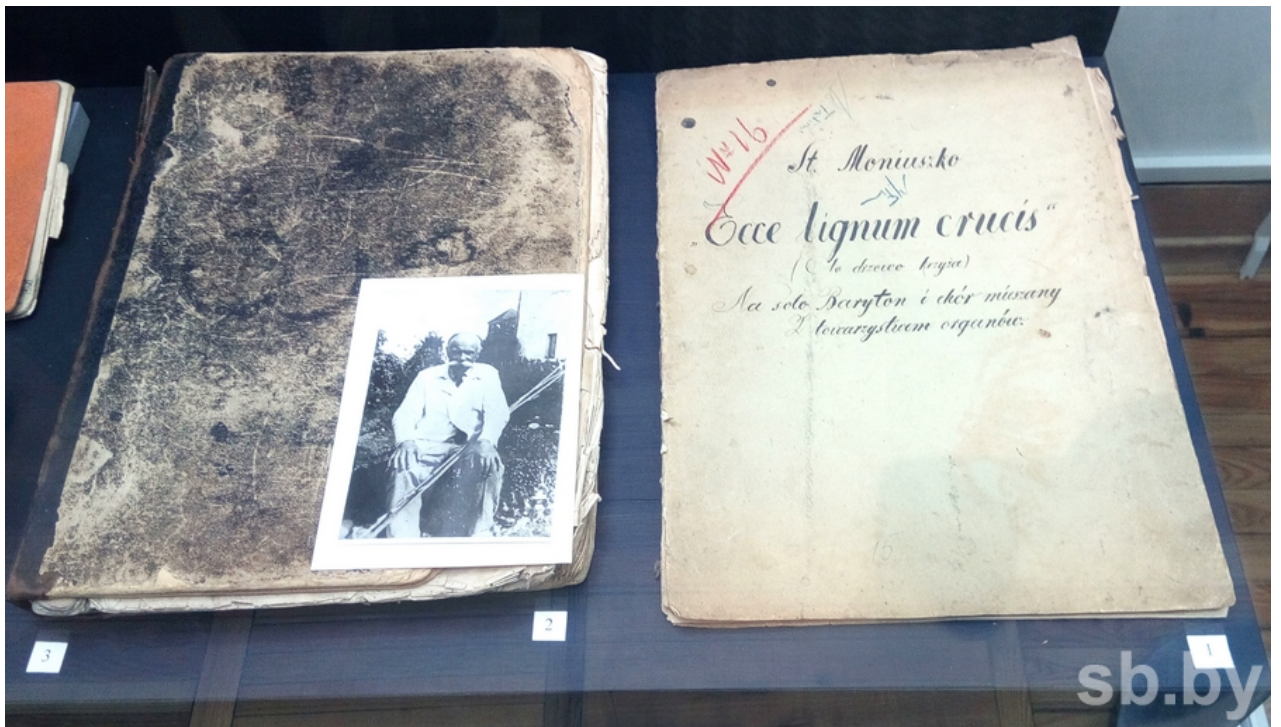 № 16
St. Moniuszko
„Ecce lignum crucis“
(To drzewo krzyża)
Na solo Baryton i chór miészany
Z towarzystwem organów.
3
2
1
sb.by